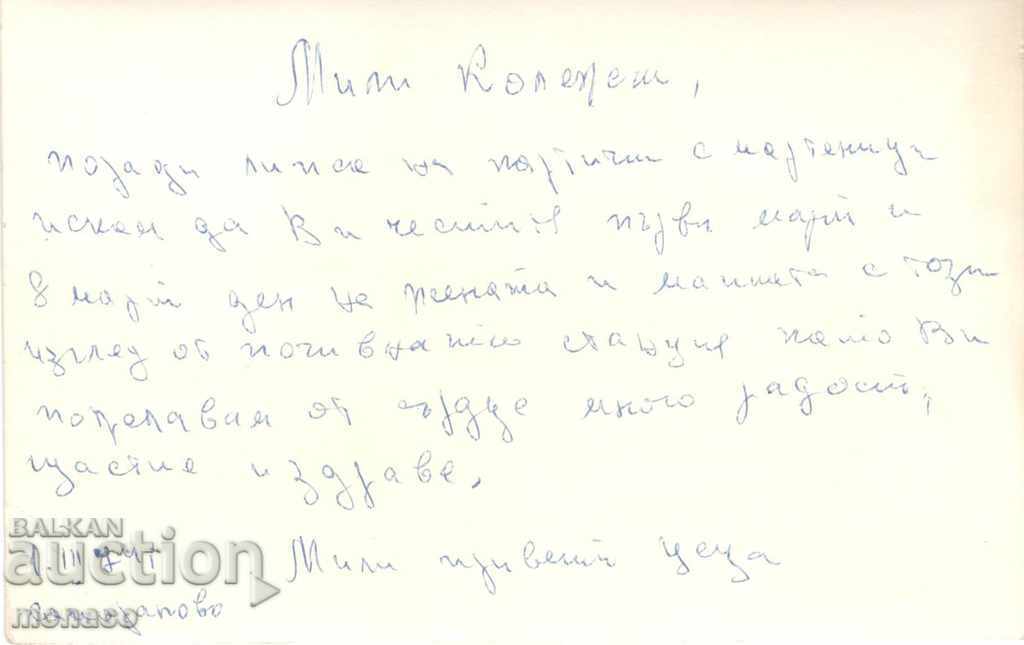 Мили Колежки,
поради липса на картички с мартеници
искам да Ви честитя първи март и
8 март ден на жената и майката с този
изглед от почивната станция като Ви
пожелавам от сърце много радост,
щастие и здраве.
1.III
Мили привети Цеца
BALKAN
auction
monaco